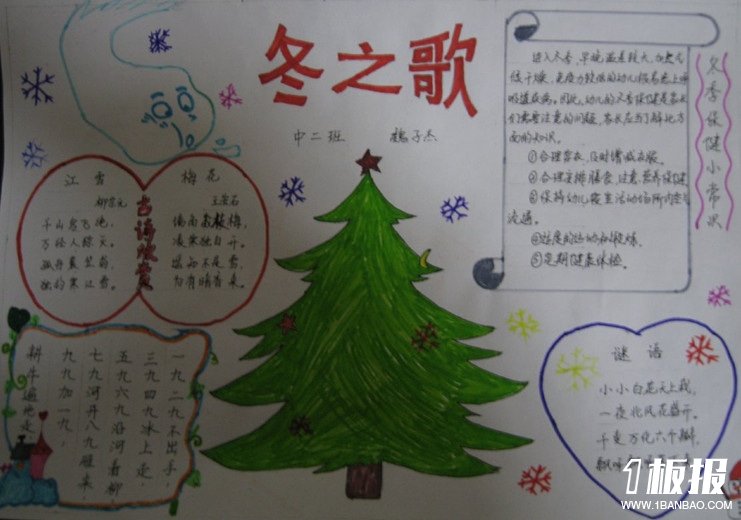 冬之歌
中二班
子杰
江雪
柳宗元
千山鸟飞绝,
万径人踪灭。
孤舟蓑笠翁,
独钓寒江雪。
古诗欣赏
梅花
王安石
墙角数枝梅,
凌寒独自开。
遥知不是雪,
为有暗香来。
进入冬季,早晚温差较大,
免疫力较低的幼儿很容易患上呼
吸道疾病。因此,幼儿的冬季保健是家长
们需要注意的问题,家长应当了解
面的知识。
①合理穿衣,及时增减衣服。
②合理安排膳食,注意营养保健。
③保持幼儿生活
流通。
④适度的运动和锻炼。
⑤定期健康体检。
冬季保健小常识
一九二九不出手,
三九四九冰上走,
五九六九沿河看柳
七九河开八九雁来,
九九加一九,
耕牛遍地走
谜语
小小白花天上栽,
一夜北风花盛开。
千变万化六个瓣,
飘
1板报
WWW.1BANBAO.COM